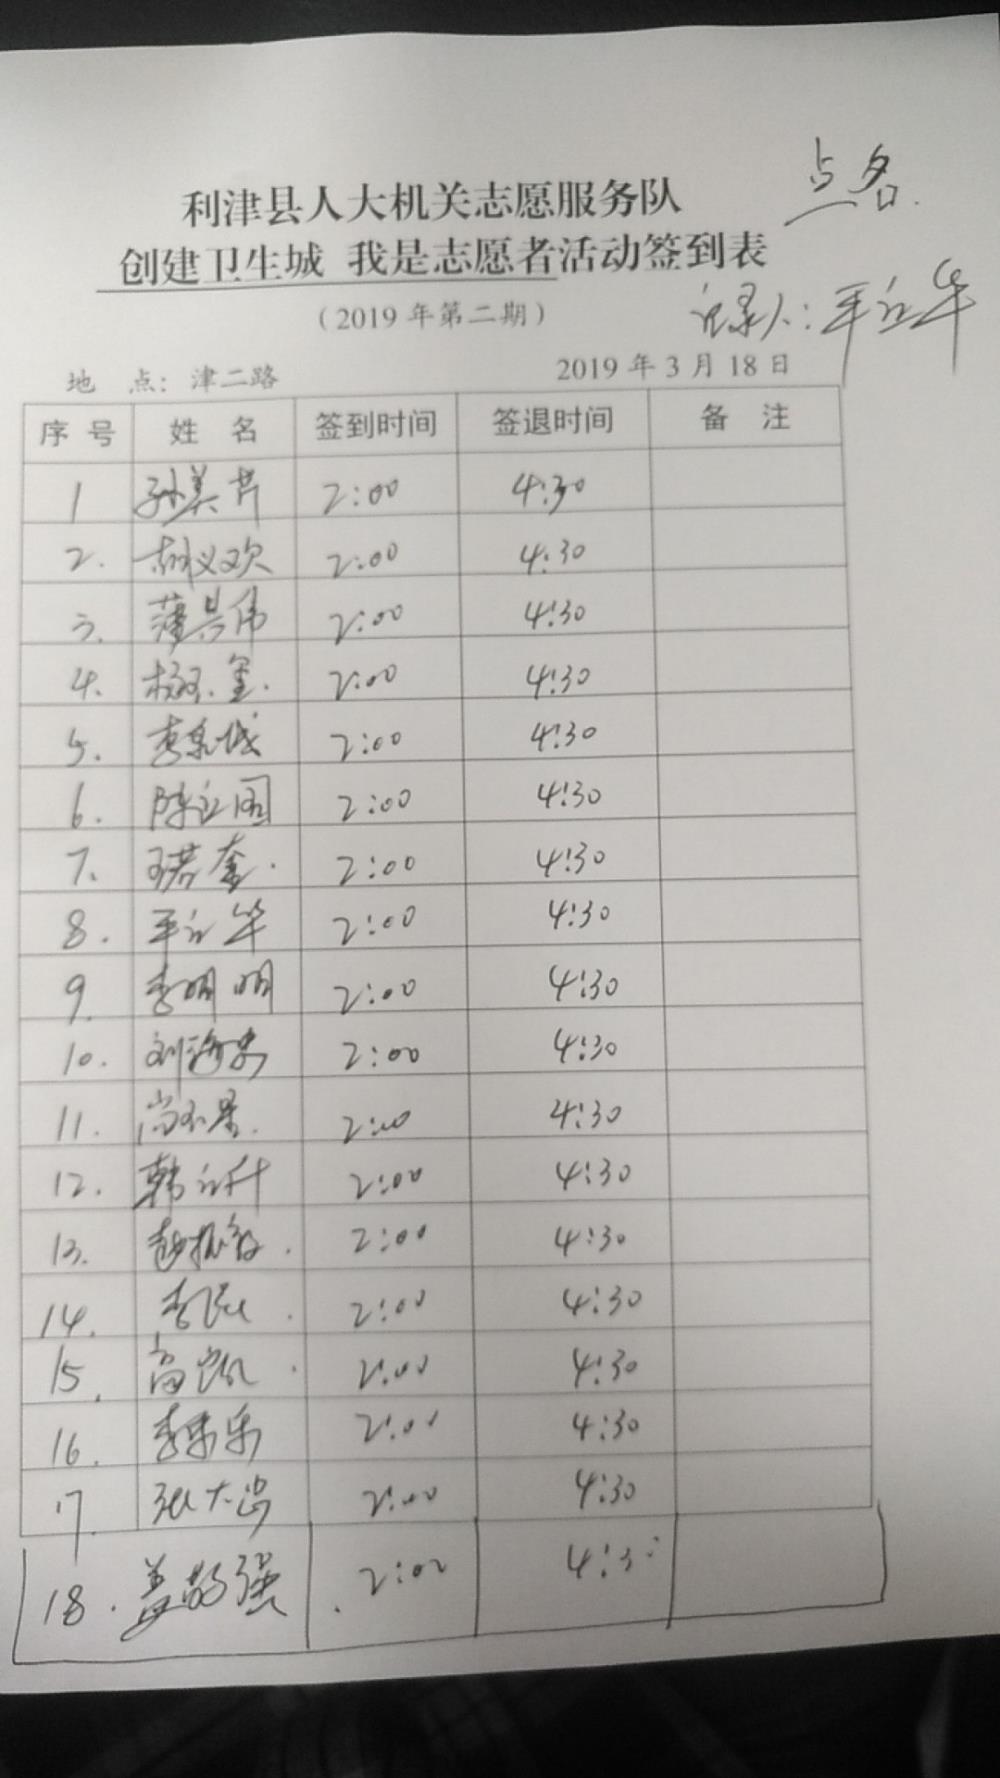 点名
利津县人大机关志愿服务队
创建卫生城 我是志愿者活动签到表
(2019年第二期)
记录人:平立华
地 点: 津二路 2019年3月18日
序号 姓名 签到时间 签退时间 备注
1 孙美芹 2:00 4:30
2. 胡义欢 2:00 4:30
3. 薄其伟 2:00 4:30
4. 2:00 4:30
5. 李泉城 2:00 4:30
6. 陈立国 2:00 4:30
7. 2:00 4:30
8. 平立华 2:00 4:30
9. 李明明 2:00 4:30
10. 刘海忠 2:00 4:30
11. 2:00 4:30
12. 韩立升 2:00 4:30
13. 赵振 2:00 4:30
14. 李 2:00 4:30
15. 高 2:00 4:30
16. 李乐乐 2:00 4:30
17. 张大 2:00 4:30
18. 盖敬强 2:00 4:30